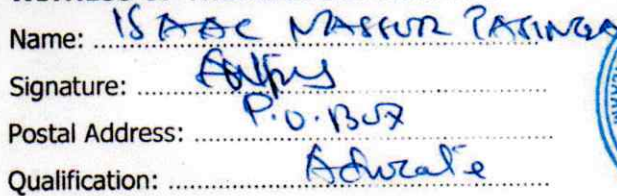 Name: ISAAC MASSUR TASINGA
Signature:
Postal Address: P.O.BOX
Qualification: Advocate